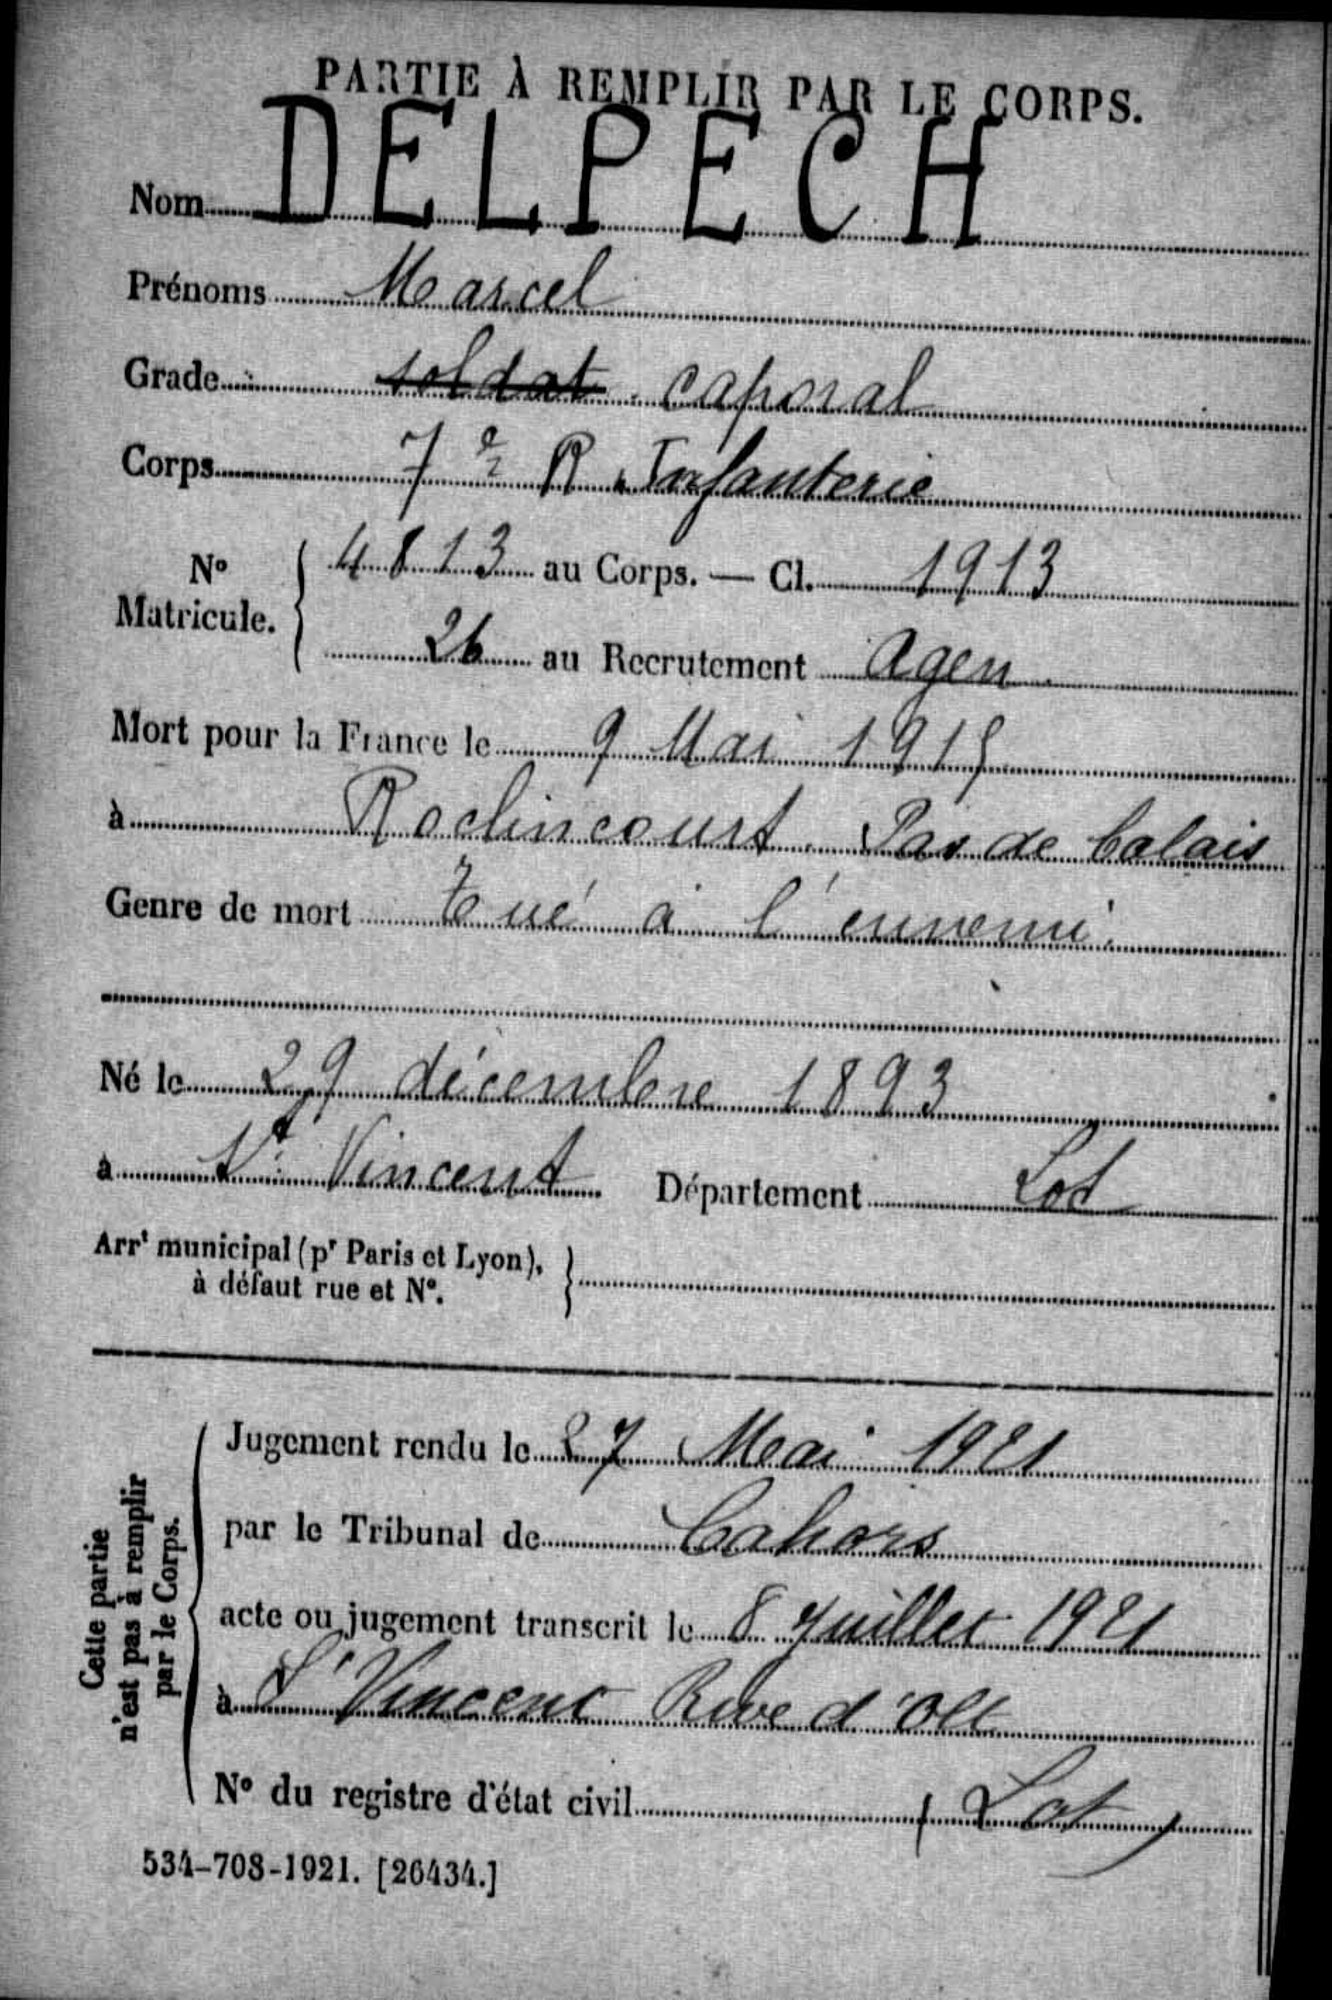 PARTIE À REMPLIR PAR LE CORPS.
Nom DELPECH
Prénoms Marcel
Grade soldat caporal
Corps 7e R. Infanterie
N° Matricule. 4813 au Corps. — Cl. 1913
26 au Recrutement Agen
Mort pour la France le 9 Mai 1915
à Roclincourt. Pas de Calais
Genre de mort Tué à l'ennemi.
Né le 29 décembre 1893
à St Vincent Département Lot
Arrt municipal (pr Paris et Lyon),
à défaut rue et N°.
Cette partie
n'est pas à remplir
par le Corps.
Jugement rendu le 27 Mai 1921
par le Tribunal de Cahors
acte ou jugement transcrit le 8 Juillet 1921
à St Vincent Rive d'Olt
N° du registre d'état civil (Lot)
534-708-1921. [26434.]